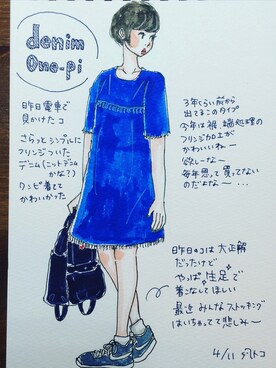 denim
One-pi
昨日電車で
見かけたコ
さらっとシンプルに
フリンジついた
デニム(ニットデニム
かな?)
ワンピ着てて
かわいかった
3年くらい前から
出てるこのタイプ
今年は裾、端処理の
フリンジ加工が
かわいいねー
欲しーなー
毎年思って買ってない
のだよなー…
昨日のコは大正解
だったけど
やっぱ生足で
着こなしてほしい
最近みんなストッキング
はいちゃってて悲しみー
4/11